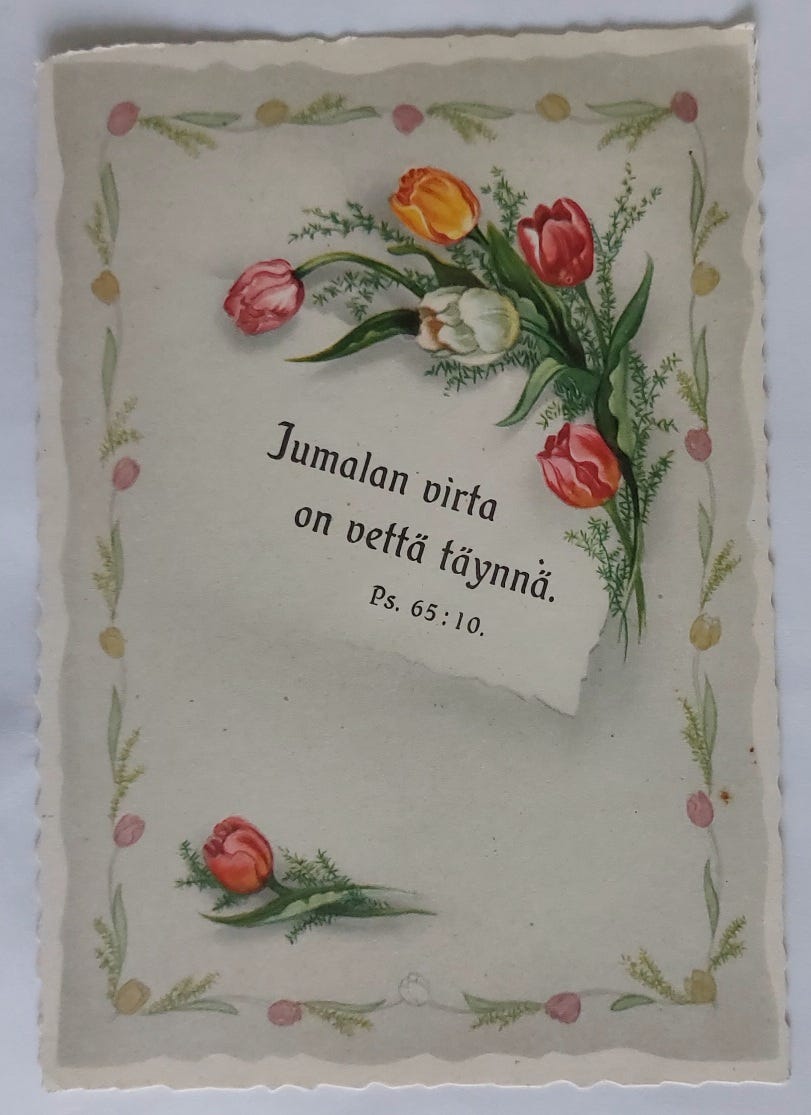 Jumalan virta
on vettä täynnä.
Ps. 65:10.